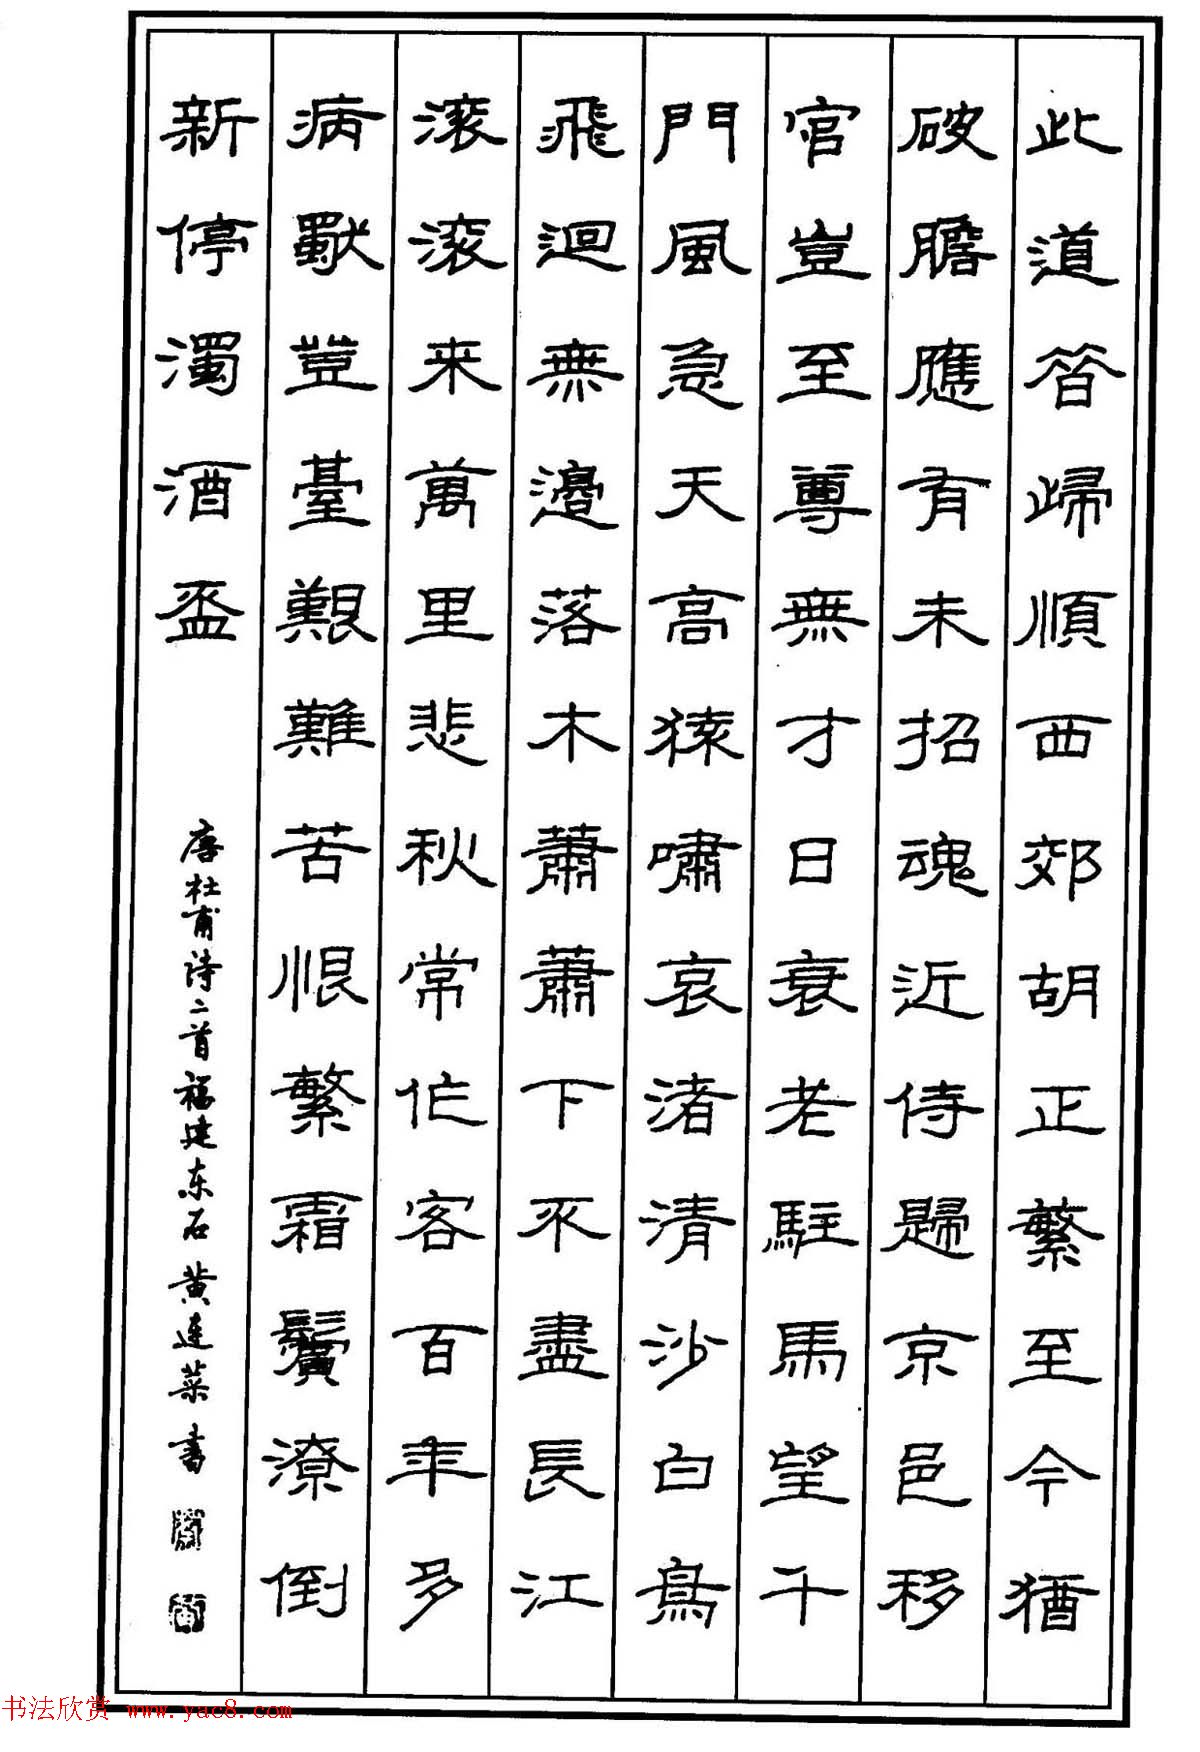 此道昔歸順西郊胡正繁至今猶
破膽應有未招魂近侍歸京邑移
官豈至尊無才日衰老駐馬望千
門風急天高猿嘯哀渚清沙白鳥
飛迴無邊落木蕭蕭下不盡長江
滚滚来萬里悲秋常作客百年多
病獨登臺艱難苦恨繁霜鬢潦倒
新停濁酒盃
唐杜甫诗二首福建东石黄連菜書
书法欣赏 www.yac8.com